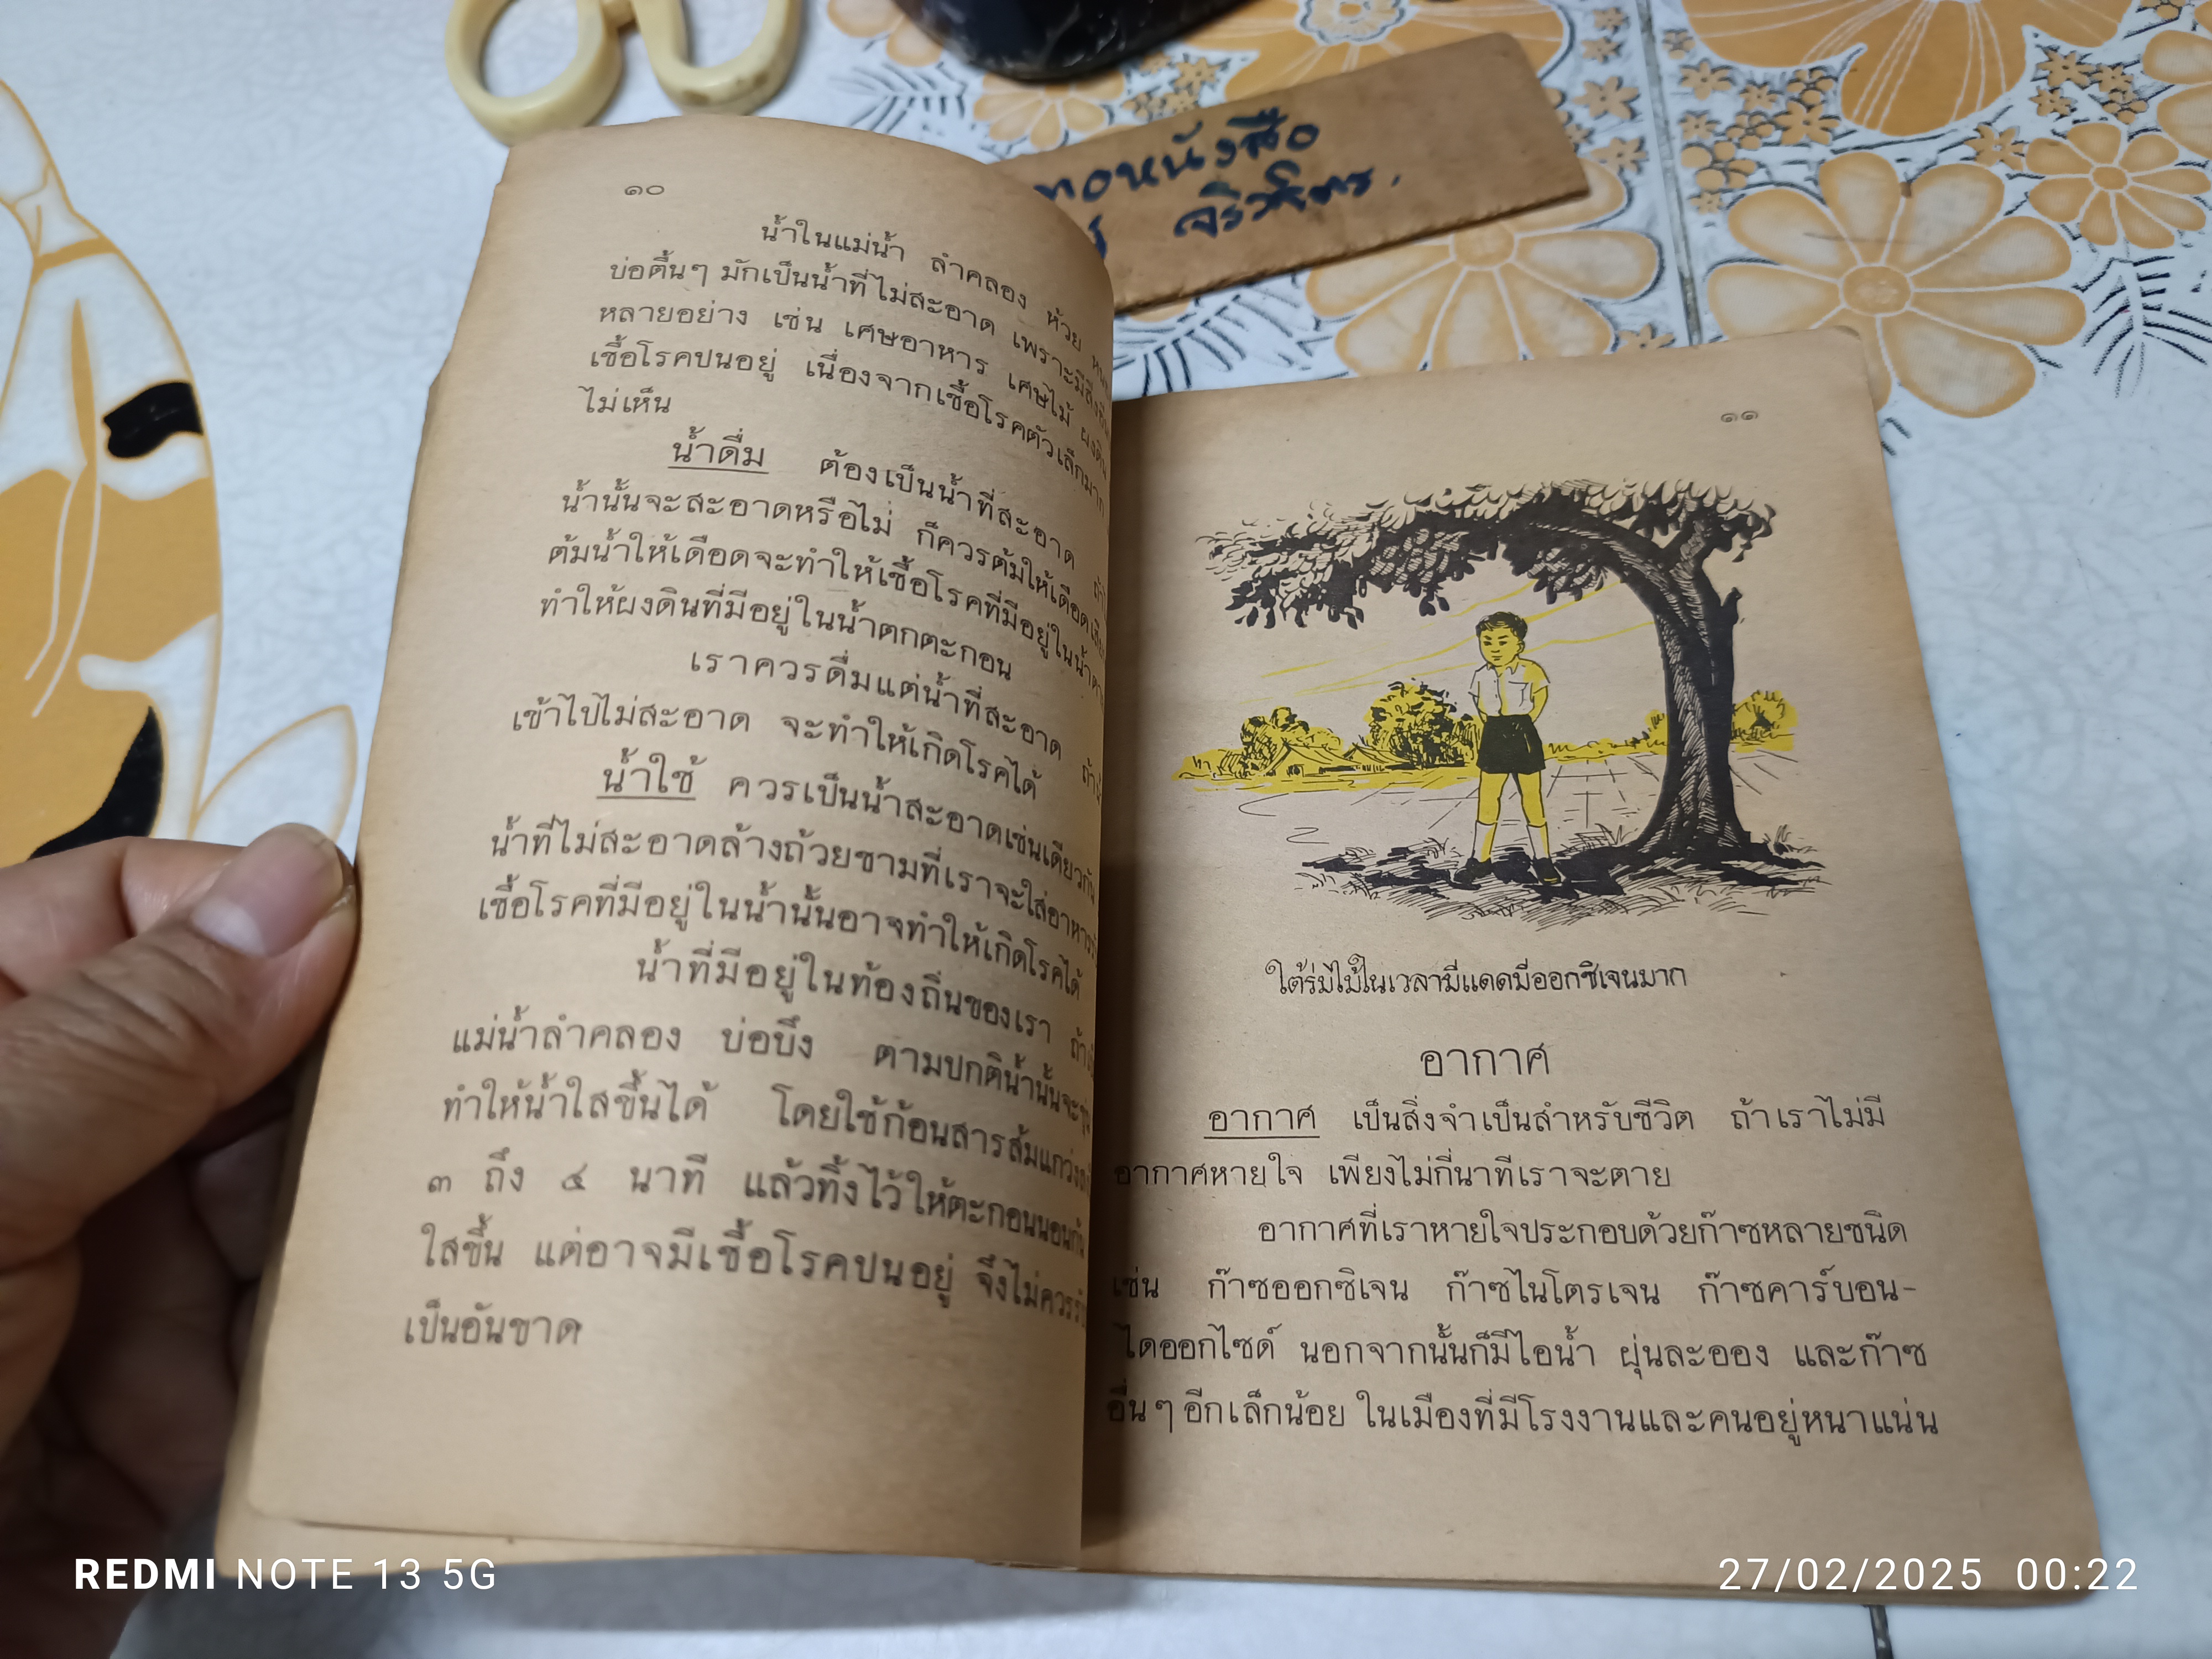 ทอหนังสือ
๑๐
น้ำในแม่น้ำ ลำคลอง ห้วย
บ่อตื้นๆ มักเป็นน้ำที่ไม่สะอาด เพราะมีสิ่ง
หลายอย่าง เช่น เศษอาหาร เศษไม้ ผงดิน
เชื้อโรคปนอยู่ เนื่องจากเชื้อโรคตัวเล็กมาก
ไม่เห็น
น้ำดื่ม ต้องเป็นน้ำที่สะอาด
น้ำนั้นจะสะอาดหรือไม่ ก็ควรต้มให้เดือด
ต้มน้ำให้เดือดจะทำให้เชื้อโรคที่มีอยู่ในน้ำตาย
ทำให้ผงดินที่มีอยู่ในน้ำตกตะกอน
เราควรดื่มแต่น้ำที่สะอาด
เข้าไปไม่สะอาด จะทำให้เกิดโรคได้
น้ำใช้ ควรเป็นน้ำสะอาดเช่นเดียวกัน
น้ำที่ไม่สะอาดล้างถ้วยชามที่เราจะใส่อาหาร
เชื้อโรคที่มีอยู่ในน้ำนั้นอาจทำให้เกิดโรคได้
น้ำที่มีอยู่ในท้องถิ่นของเรา
แม่น้ำลำคลอง บ่อบึง ตามปกติน้ำนั้นจะ
ทำให้น้ำใสขึ้นได้ โดยใช้ก้อนสารส้มแกว่ง
๓ ถึง ๔ นาที แล้วทิ้งไว้ให้ตะกอนนอนก้น
ใสขึ้น แต่อาจมีเชื้อโรคปนอยู่ จึงไม่ควร
เป็นอันขาด
๑๑
ใต้ร่มไม้ในเวลามีแดดมีออกซิเจนมาก
อากาศ
อากาศ เป็นสิ่งจำเป็นสำหรับชีวิต ถ้าเราไม่มี
อากาศหายใจ เพียงไม่กี่นาทีเราจะตาย
อากาศที่เราหายใจประกอบด้วยก๊าซหลายชนิด
เช่น ก๊าซออกซิเจน ก๊าซไนโตรเจน ก๊าซคาร์บอน-
ไดออกไซด์ นอกจากนั้นก็มีไอน้ำ ผุ่นละออง และก๊าซ
อื่นๆ อีกเล็กน้อย ในเมืองที่มีโรงงานและคนอยู่หนาแน่น
REDMI NOTE 13 5G
27/02/2025 00:22